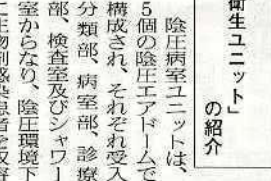 衛生ユニット」
の紹介
陰圧病室ユニットは、
5個の陰圧エアドームで
構成され、それぞれ受入
分類部、病室部、診療
部、検査室及びシャワー
室からなり、陰圧環境下